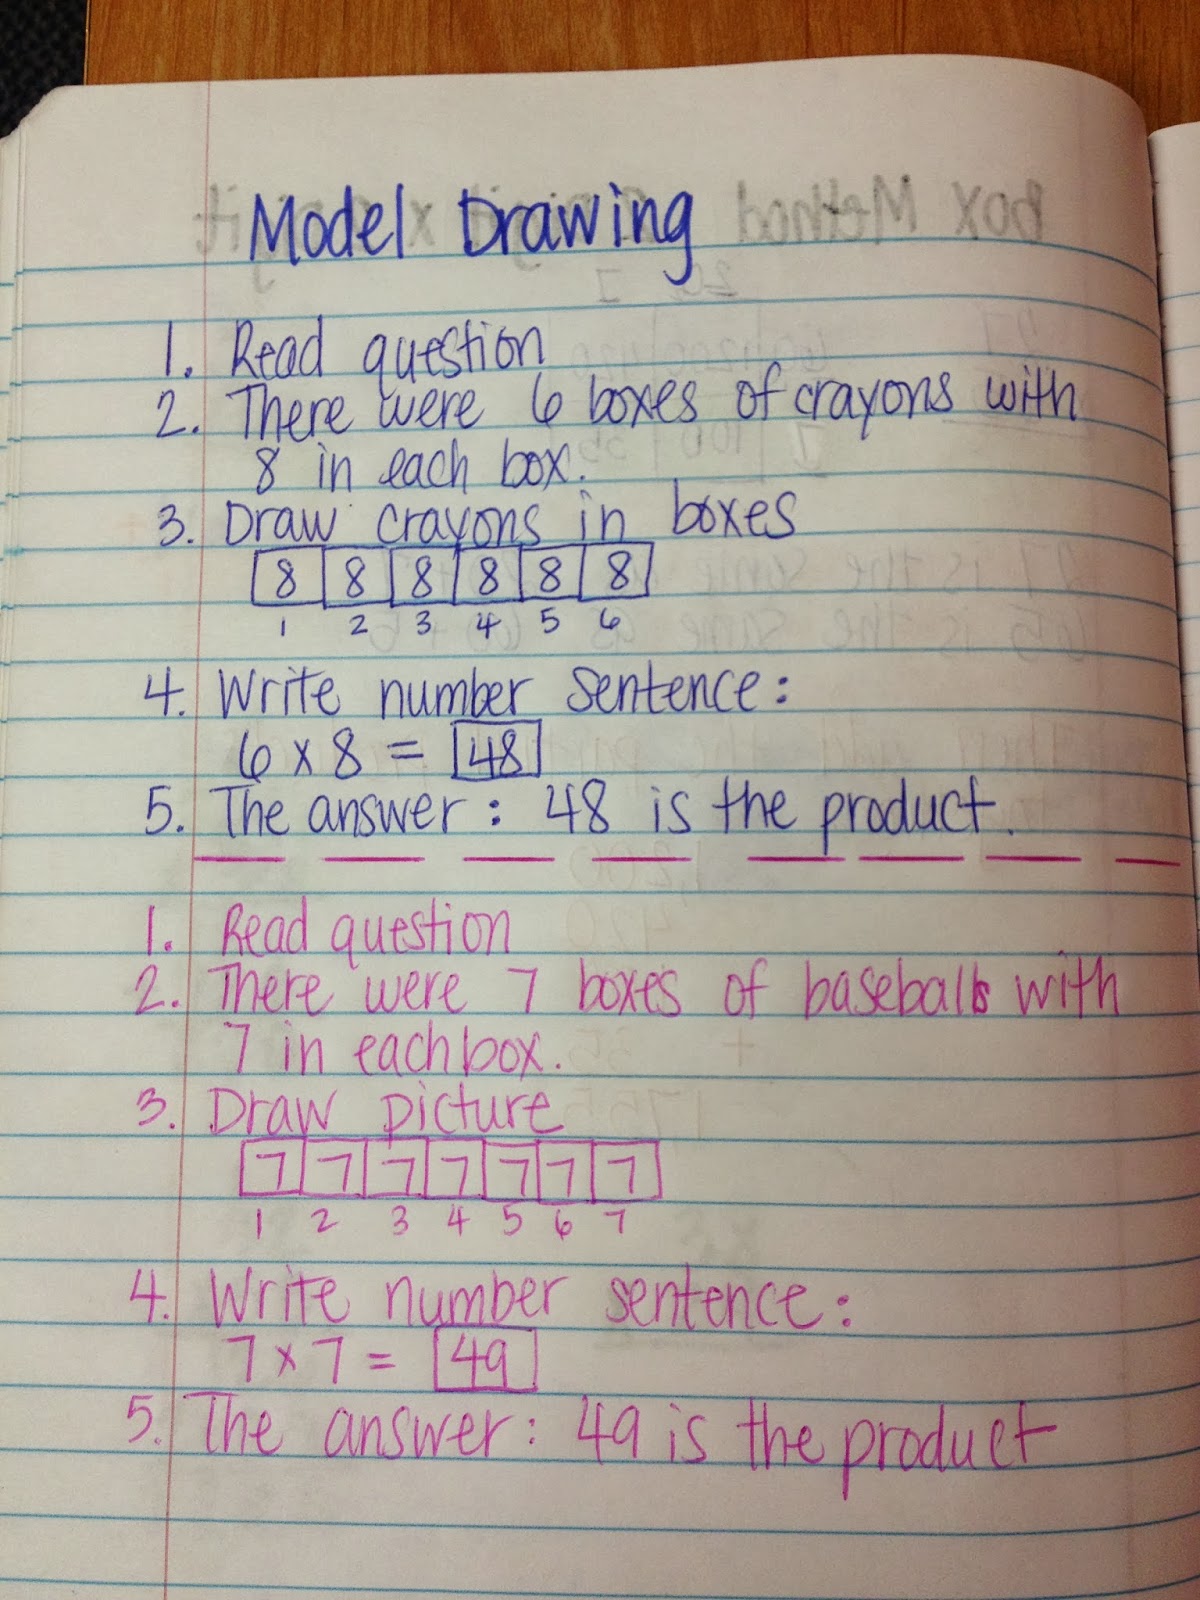 Model Drawing
1. Read question
2. There were 6 boxes of crayons with
8 in each box.
3. Draw crayons in boxes
8 8 8 8 8 8
1 2 3 4 5 6
4. Write number sentence:
6 x 8 = 48
5. The answer: 48 is the product.
1. Read question
2. There were 7 boxes of baseballs with
7 in each box.
3. Draw picture
7 7 7 7 7 7 7
1 2 3 4 5 6 7
4. Write number sentence:
7 x 7 = 49
5. The answer: 49 is the product